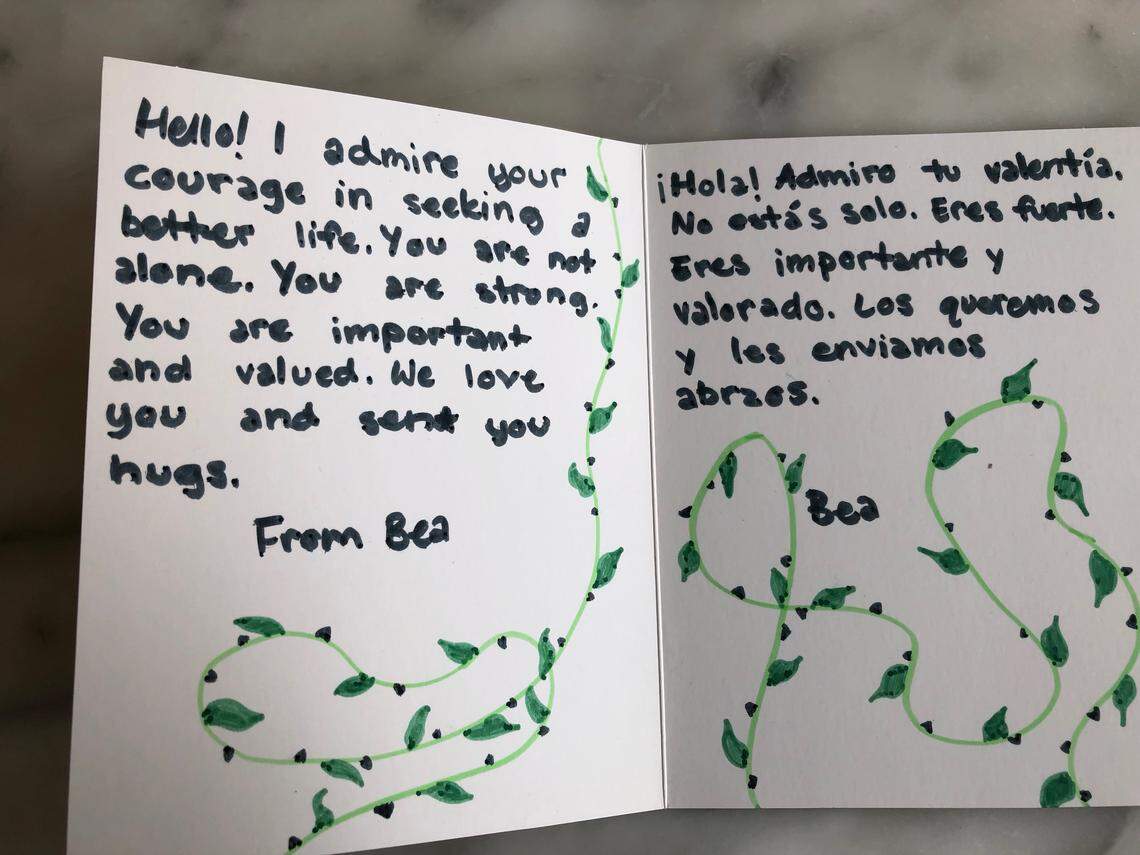 Hello! I admire your
courage in seeking a
better life. You are not
alone. You are strong.
You are important
and valued. We love
you and send you
hugs.
From Bea
¡Hola! Admiro tu valentía.
No estás solo. Eres fuerte.
Eres importante y
valorado. Los queremos
y les enviamos
abrazos.
Bea